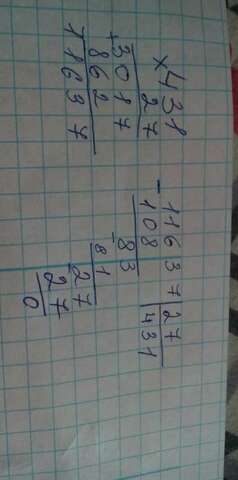 ×431
27
+3017
862
11637
-11637|27
108|431
-83
81
-27
27
0